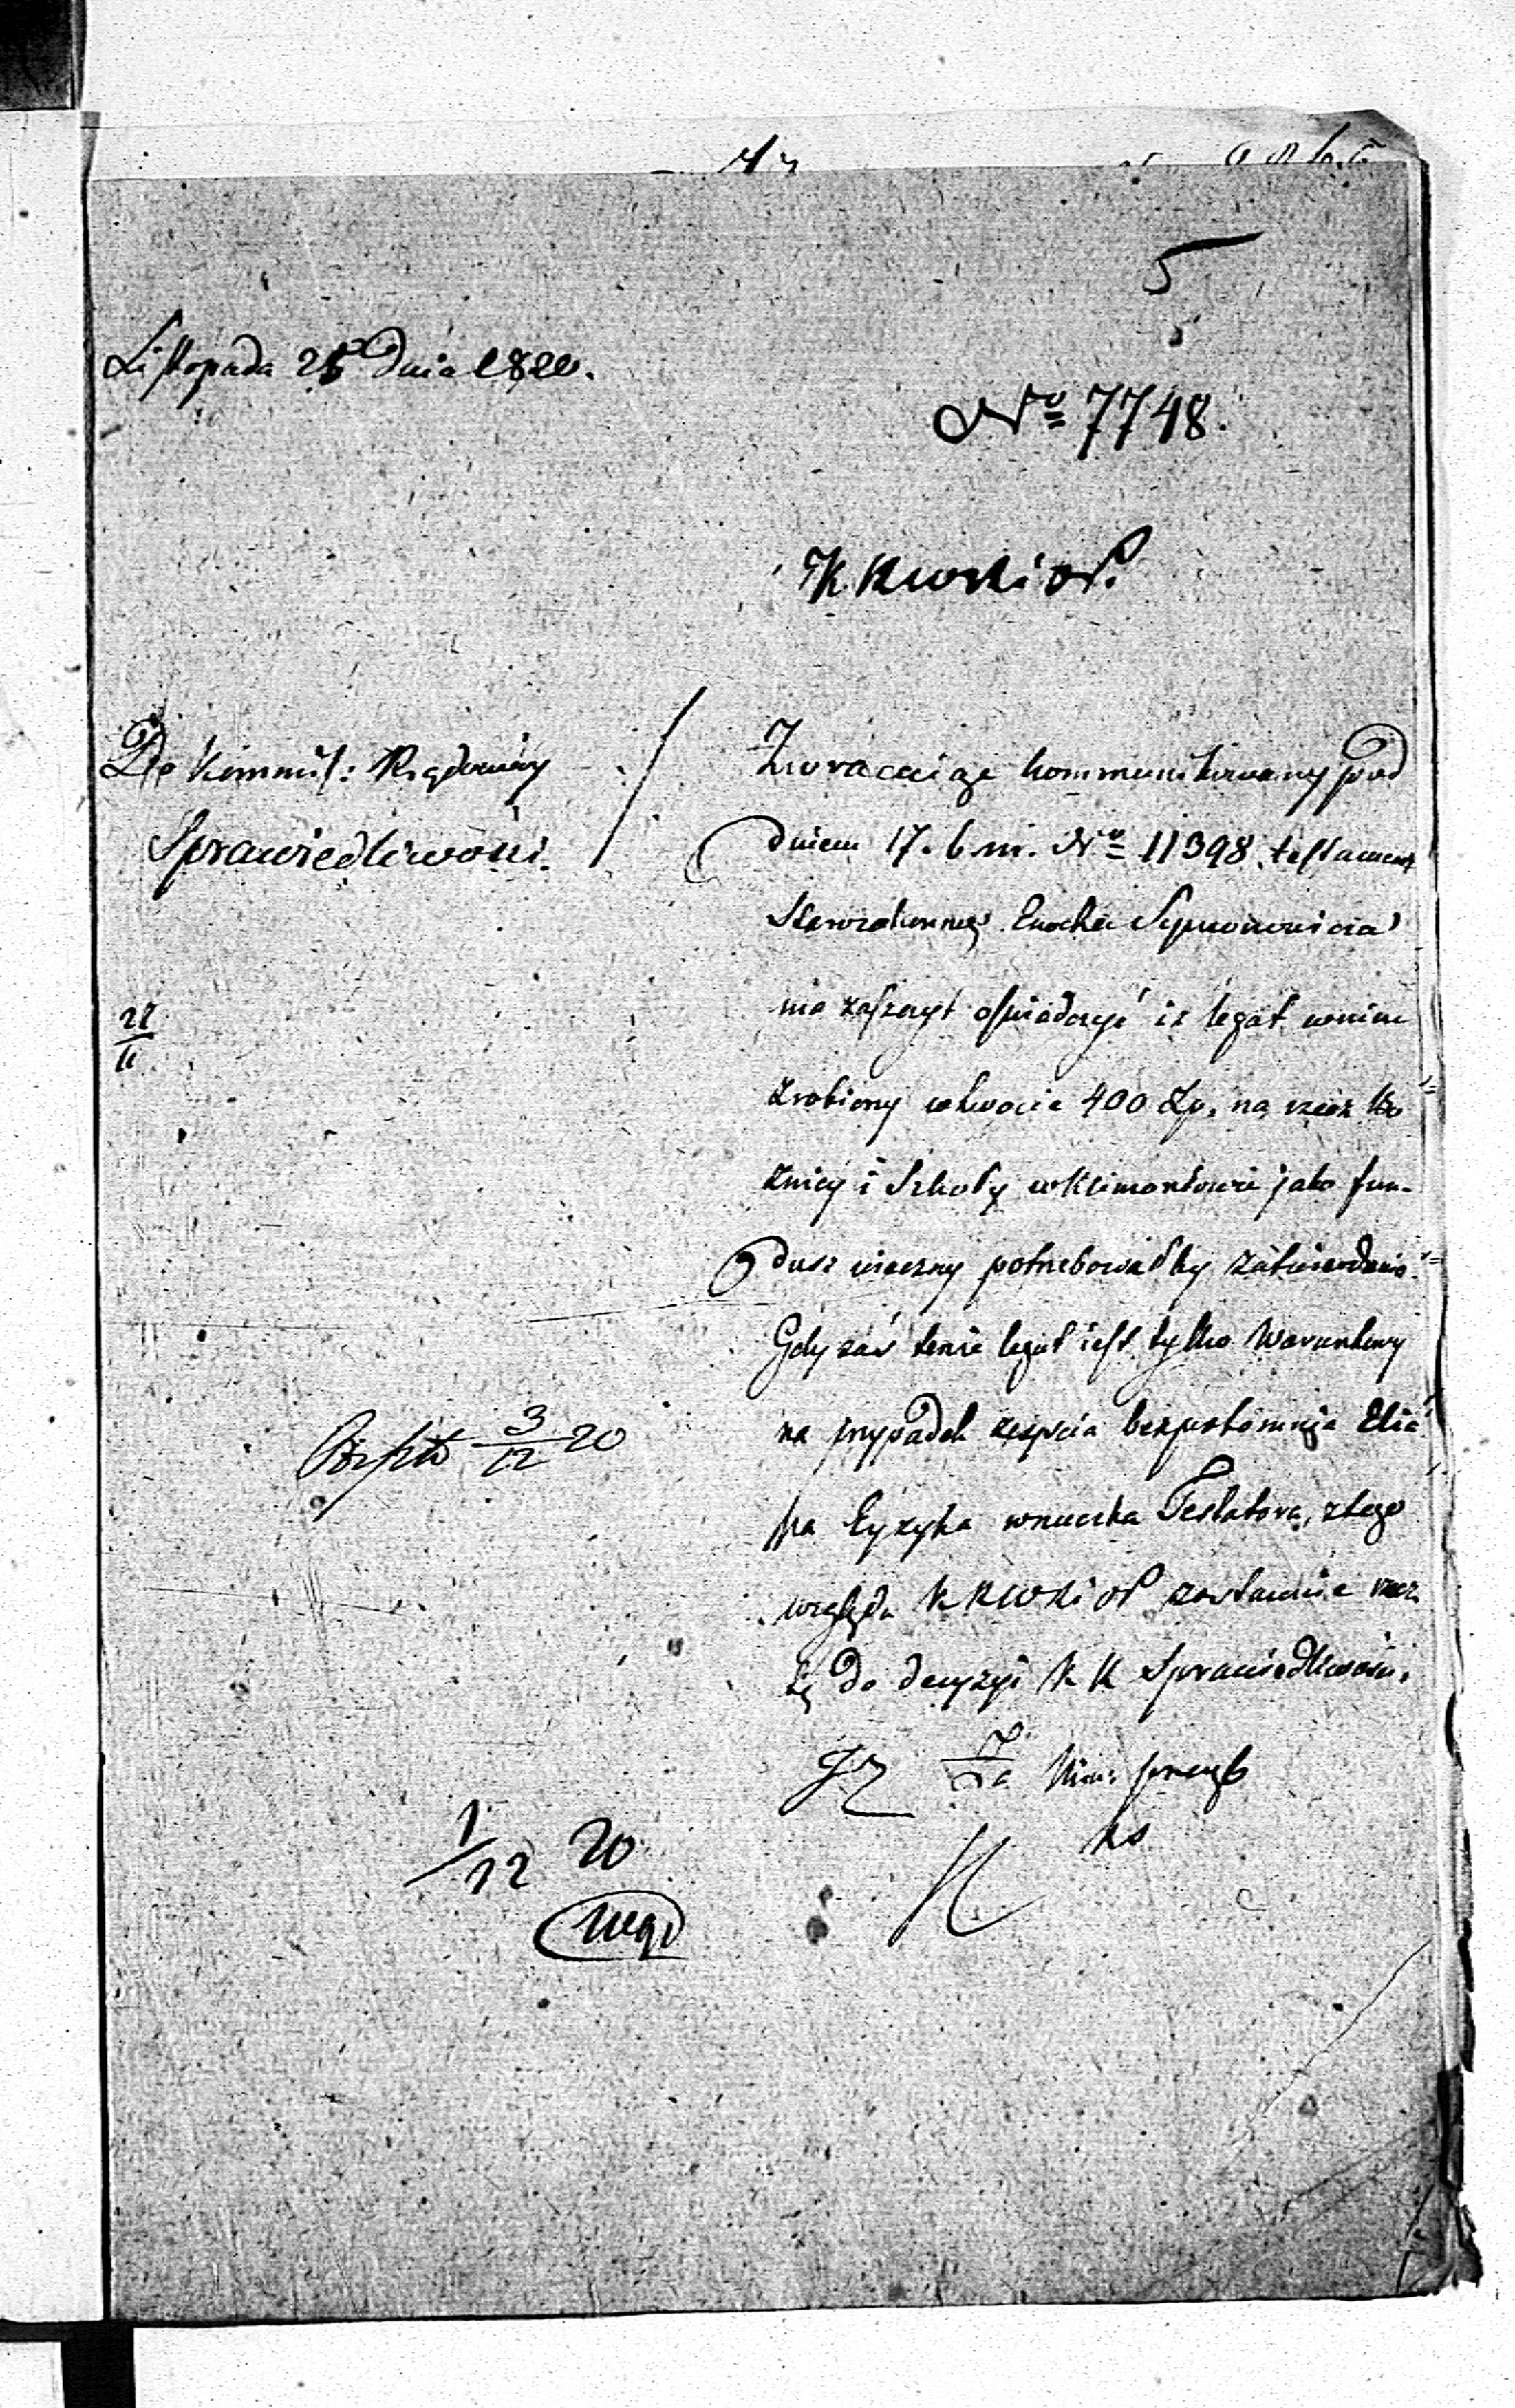 5
Listopada 25 Dnia 1820.
No 7748.
K RWRiOP.
Do Kommis: Rządowey
Sprawiedliwości.
Zwracaiąc kommunikowany pod
dniem 17. b. m. No 11398. testament
Starozakonneg Enocha Symonowicza
ma zaszczyt oświadczyć iż legat w nim
zrobiony w kwocie 400 Zp. na rzecz Bo=
żnicy i Szkoły w Klimontowie jako fun-
dusz wieczny potrzebowałby zatwierdzenia.
Gdy zaś tenże legat iest tylko warunkowy
na przypadek zeyścia bezpotomnie Elia
sza Eyzyka wnuczka Testatora, z tego
względu K RWRiOP zostawuie rzecz
tę do decyzyi K R Sprawiedliwości.
27/11
3/12 20
Za Min: prezyd
1/12 20